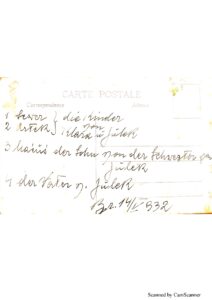 CARTE POSTALE
Correspondance Adresse
1 Sewer } die Kinder
2 Artek } von Klara u Julek
3 Hans der Sohn von der Schwester von
Julek
4 der Vater v. Julek
932
Scanned by CamScanner